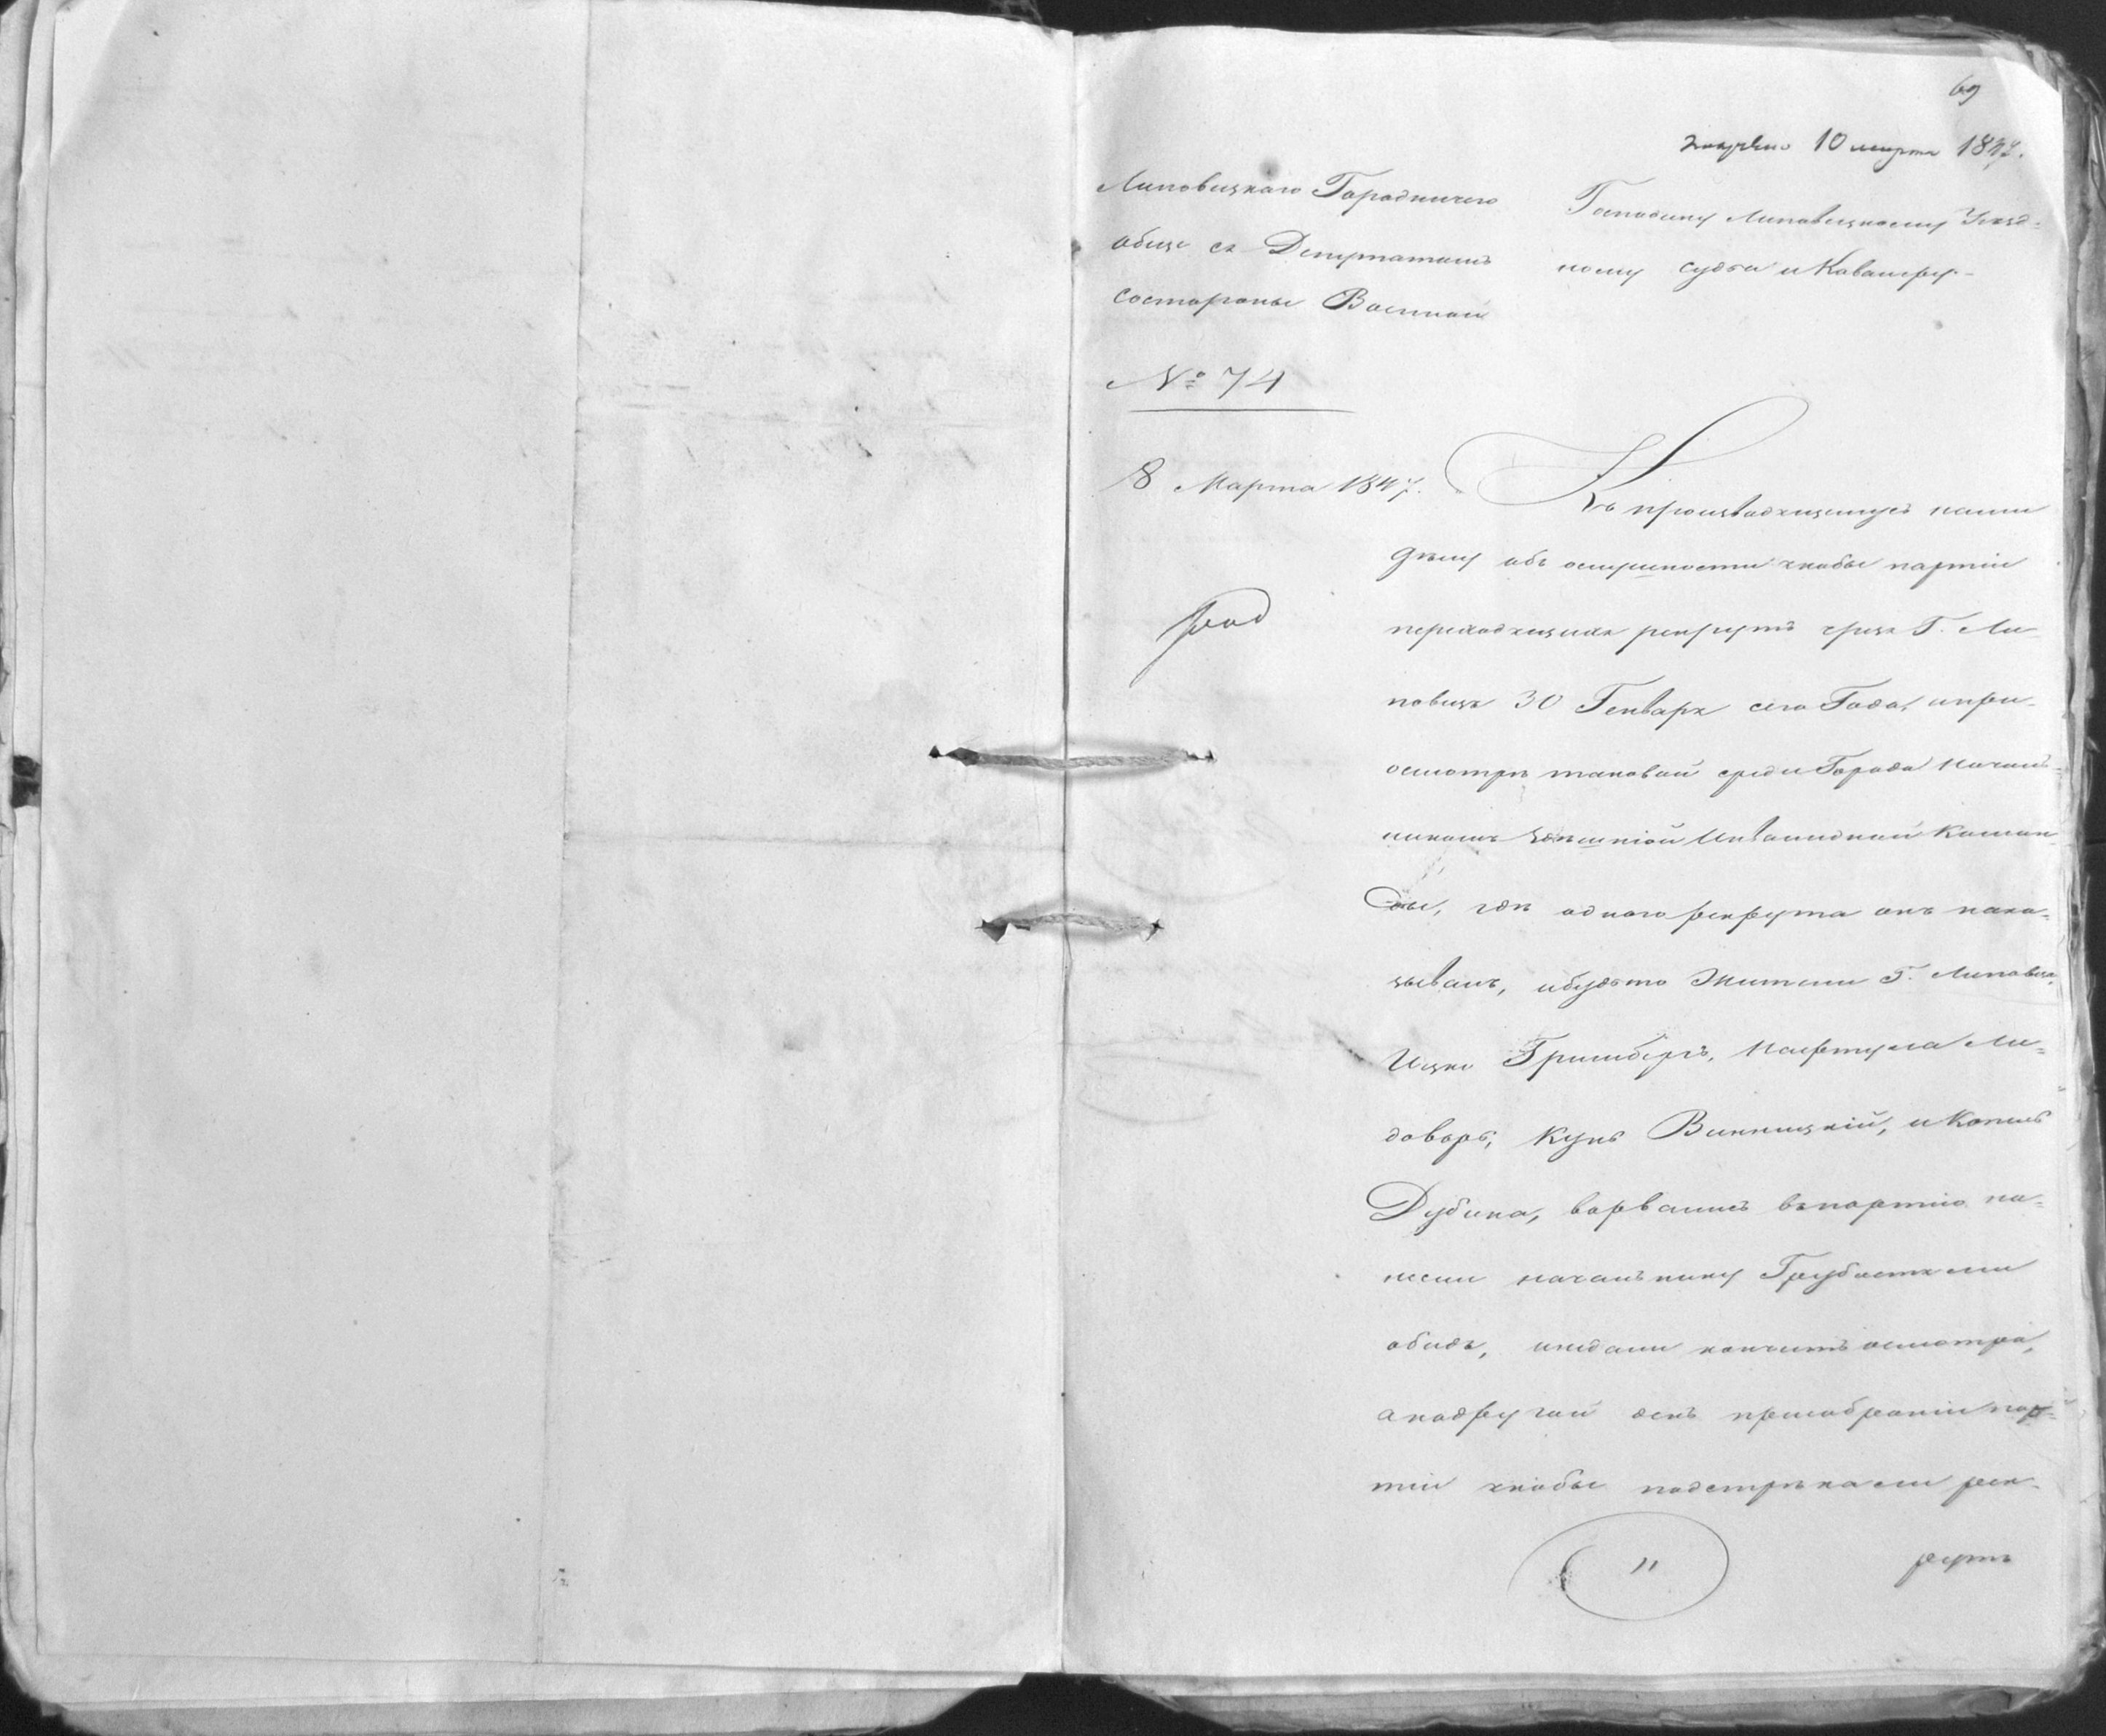 69
получено 10 марта 1847.
Липовецкаго Городничего
обще съ Депутатомъ
состороны Военной
№ 74
8 Марта 1847.
Господину Липовецкому Уезд=
ному судьи и Кавалеру.
Къ производящемуся нами
делу объ ослушности якобы партіи
переходящихъ рекрутъ чрезъ Г. Ли
повецъ 30 Генваря сего Года, ипри
осмотре таковой среди Города Началь=
никомъ здешніой Инвалидной Коман
ды, где одного рекрута онъ нака=
зывалъ, ибудьто Жители Г. Липовца,
Ицко Гринбергъ, Нафтула Ли=
доверъ, Кунъ Винницкій, и Копель
Дубина, ворвались въпартію на=
несли начальнику Грубостями
обиды, инедали кончить осмотра,
анадругой день присобраніи пар=
тіи якобы подстрекали рек-
рутъ